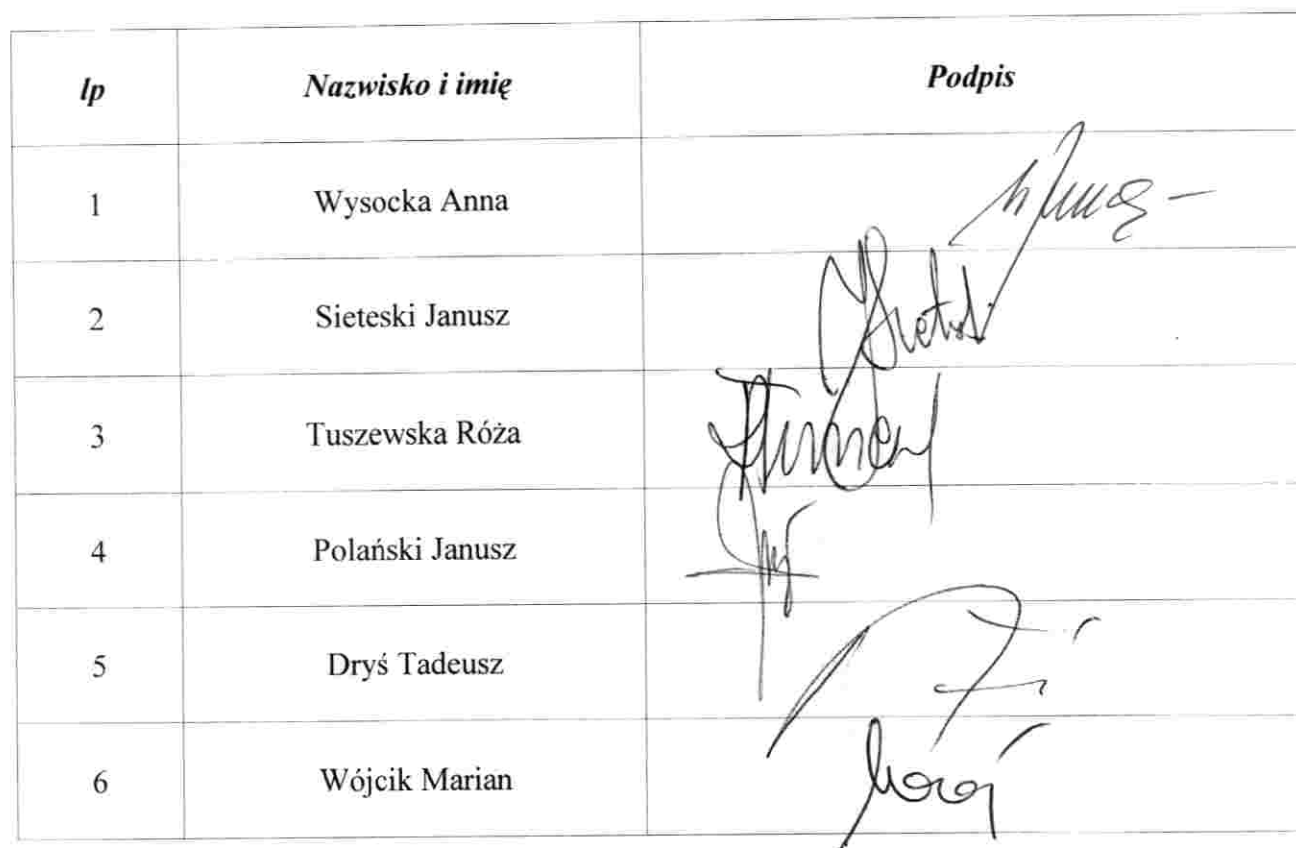 lp Nazwisko i imię Podpis
1 Wysocka Anna
2 Sieteski Janusz
3 Tuszewska Róża
4 Polański Janusz
5 Dryś Tadeusz
6 Wójcik Marian